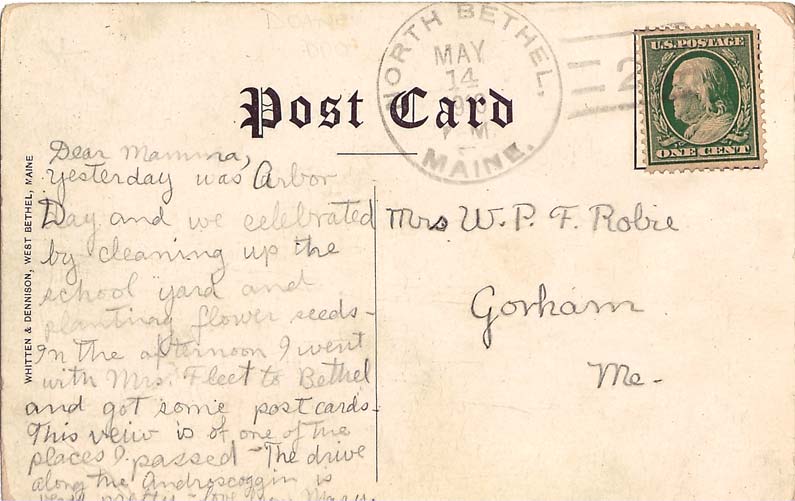 NORTH BETHEL,
MAY
14
MAINE.
U.S. POSTAGE
2
ONE CENT
Post Card
WHITTEN & DENNISON, WEST BETHEL, MAINE
Dear Mamma,
Yesterday was Arbor
Day and we celebrated
by cleaning up the
school yard and
planting flower seeds-
In the afternoon I went
with Mrs. Fleet to Bethel
and got some postcards-
This veiw is of one of the
places I passed - The drive
along the Androscoggin is
very pretty - love from Mary.
Mrs. W. P. F. Robie
Gorham
Me-